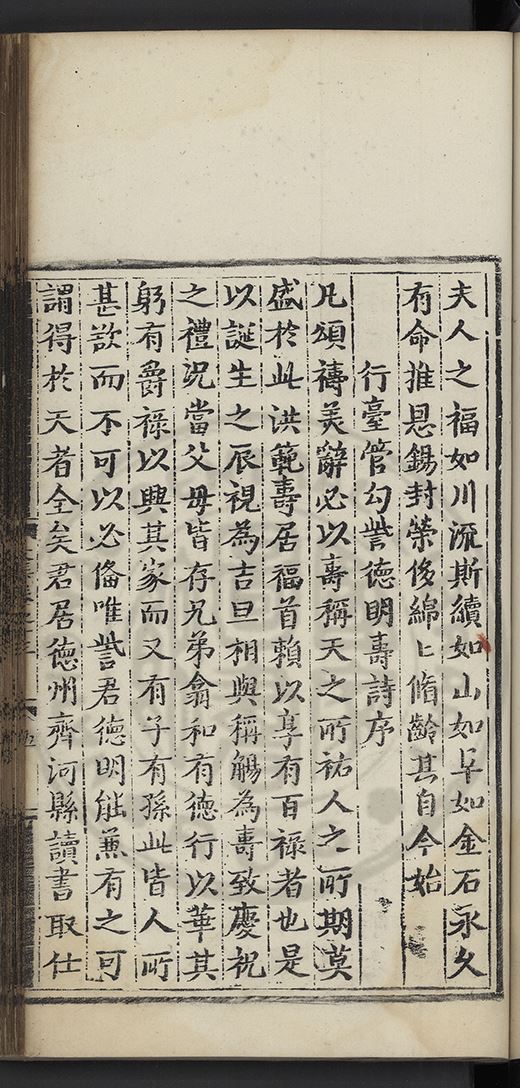 夫人之福如川流斯續如山如阜如金石永久
有命推恩錫封榮侈綿〻脩齡其自今始
行臺管勾訾德明壽詩序
凡頌禱美辭必以壽稱天之所祐人之所期莫
盛於此洪範壽居福首賴以享有百祿者也是
以誕生之辰視為吉旦相與稱觴為壽致慶祝
之禮況當父母皆存兄弟翕和有德行以華其
躬有爵祿以興其家而又有子有孫此皆人所
甚欲而不可以必俻唯訾君德明能蕪有之可
謂得於天者全矣君居德州齊河縣讀書取仕